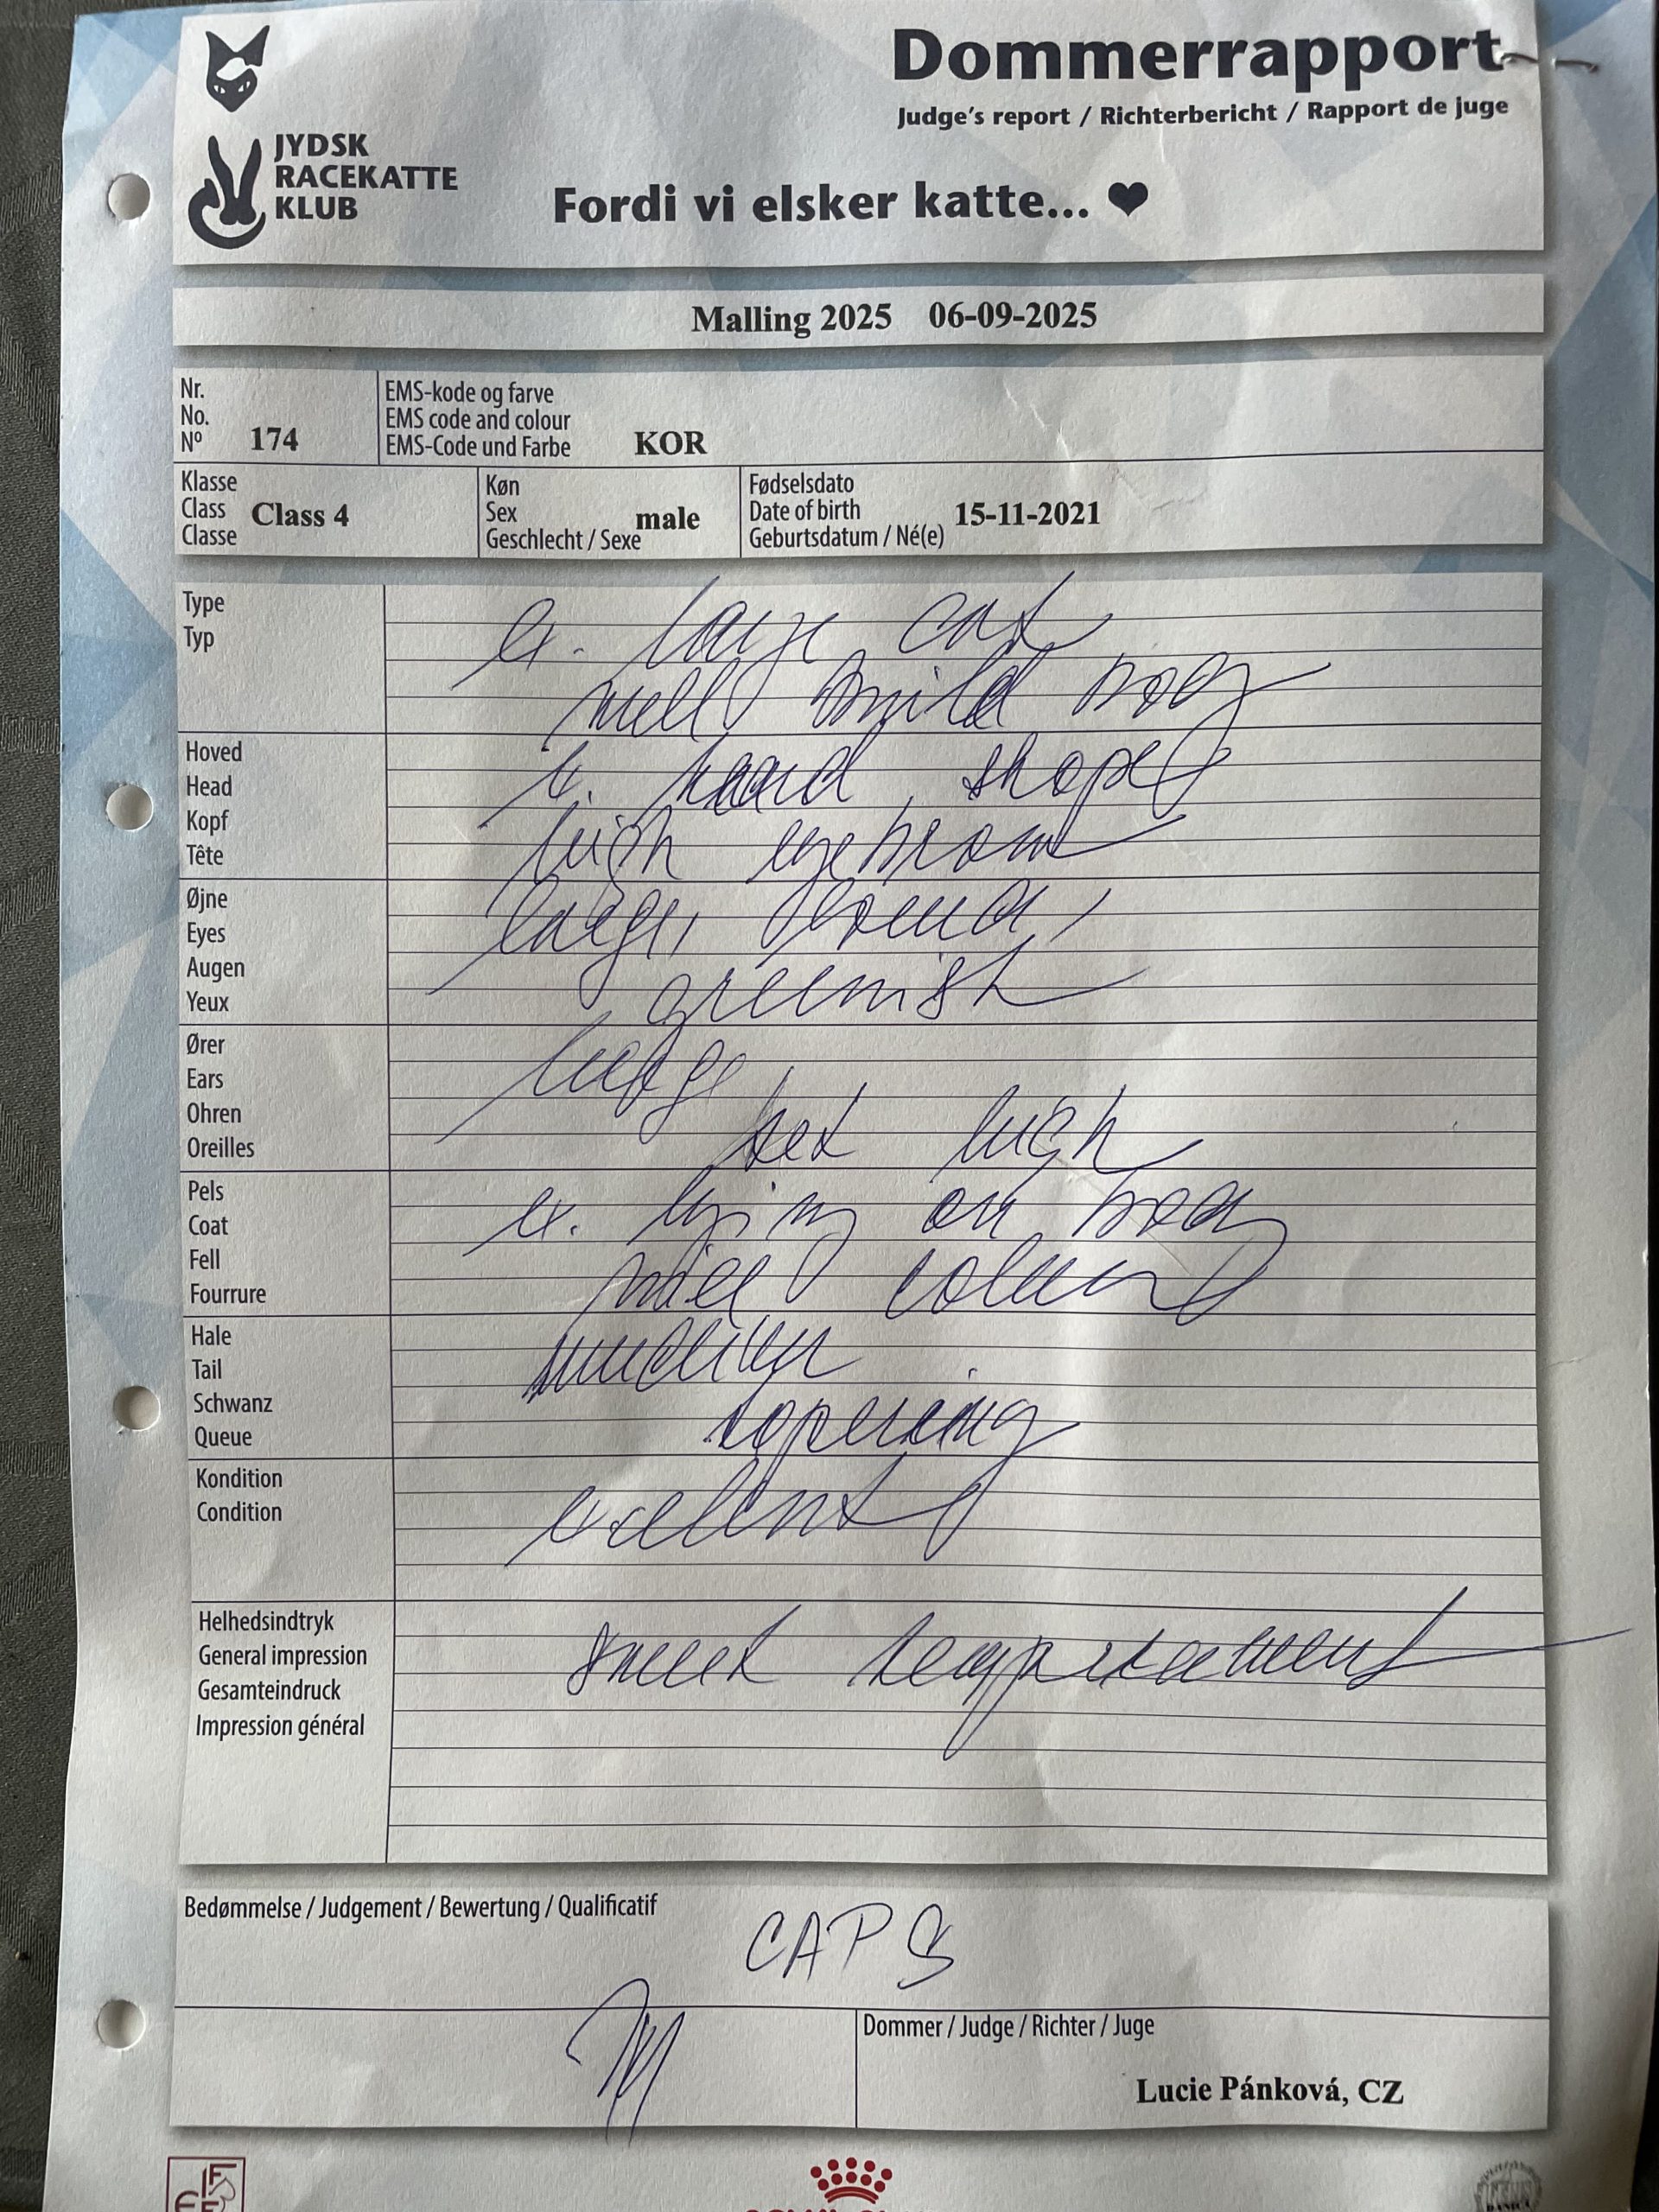 Dommerrapport
Judge's report / Richterbericht / Rapport de juge
JYDSK
RACEKATTE
KLUB
Fordi vi elsker katte... ♥
Malling 2025 06-09-2025
Nr.
No.
Nº 174
EMS-kode og farve
EMS code and colour
EMS-Code und Farbe KOR
Klasse
Class Class 4
Classe
Køn
Sex male
Geschlecht / Sexe
Fødselsdato
Date of birth 15-11-2021
Geburtsdatum / Né(e)
Type
Typ
ex. large cat
well build body
Hoved
Head
Kopf
Tête
shape
high eyebrow
Øjne
Eyes
Augen
Yeux
large, round,
greenish
Ører
Ears
Ohren
Oreilles
large
set high
Pels
Coat
Fell
Fourrure
ex. lying on body
nice colour
Hale
Tail
Schwanz
Queue
medium
tapering
Kondition
Condition
exelent
Helhedsindtryk
General impression
Gesamteindruck
Impression général
sweet
Bedømmelse / Judgement / Bewertung / Qualificatif
CAPS
Dommer / Judge / Richter / Juge
Lucie Pánková, CZ